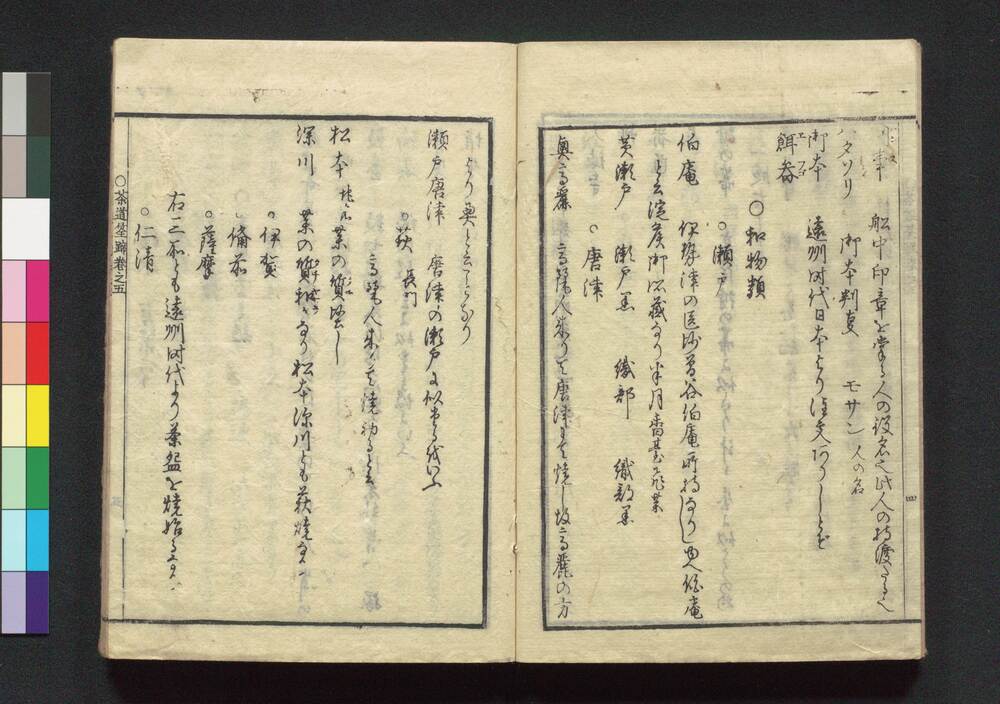 船中印章を掌る人の役名也此人の持渡りしと也
ハタソリ 御本判事 モサン 人の名
御本 遠州時代日本より注文ありしと也
餌畚 エフゴ
○和物類
○瀬戸
伯庵 伊勢津の医師曽谷伯庵所持なりし也
と云淀侯御所蔵なり半月香基飛薬
黄瀬戸 瀬戸黒 織部 織部黒
○唐津
奥高麗 高麗人来りて唐津にて焼し故高麗の方
より奥と云ことなり
瀬戸唐津 唐津の瀬戸に似たるをいふ
○萩 長門
高麗人来て焼初ると云
松本 薬の質堅し
深川 薬の質和かなり松本深川とも萩焼なり
○伊賀
○備前
○薩摩
右二所とも遠州時代より茶盌を焼始るなり
○仁清
○茶道筌蹄巻之五